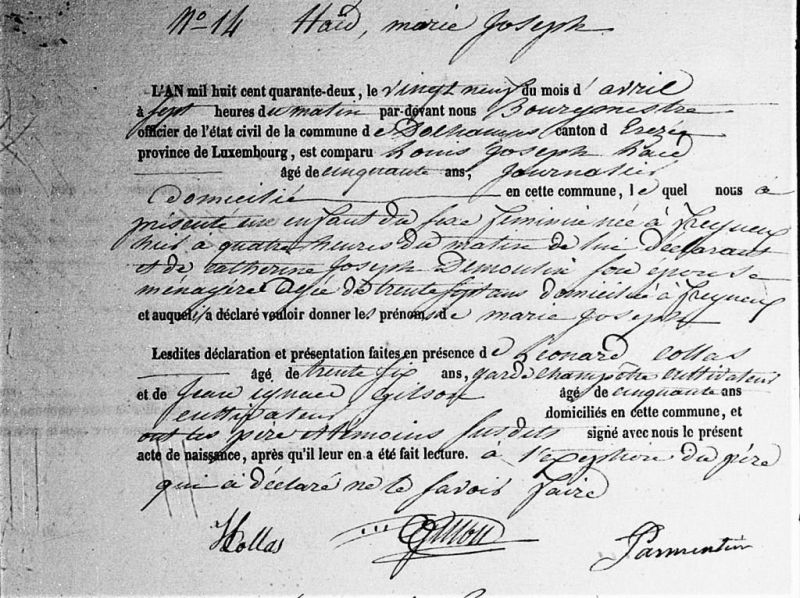 No 14 Haid, marie Joseph
L'AN mil huit cent quarante-deux, le vingt neuf du mois d'avril
à sept heures du matin par-devant nous Bourgmestre
officier de l'état civil de la commune de canton d Erezée
province de Luxembourg, est comparu Louis Joseph haid
âgé de cinquante ans, Journalier
domicilié en cette commune, le quel nous a
présenté un enfant du sexe féminin née à freyneux
hier a quatre heures du matin de lui déclarant
et de catherine Joseph Demoulin son epouse
menagère agée de trente sept ans domiciliée à freyneux
et auquel a déclaré vouloir donner les prénoms de marie Joseph
Lesdites déclaration et présentation faites en présence de Leonard Collas
âgé de trente six ans, garde champêtre cultivateur
et de jean ignace Gilson âgé de cinquante ans
cultivateur domiciliés en cette commune, et
ont les père et témoins susdits signé avec nous le présent
acte de naissance, après qu'il leur en a été fait lecture. à l'exeption du père
qui a déclaré ne le savoir faire
Collas Gilson Parmentier